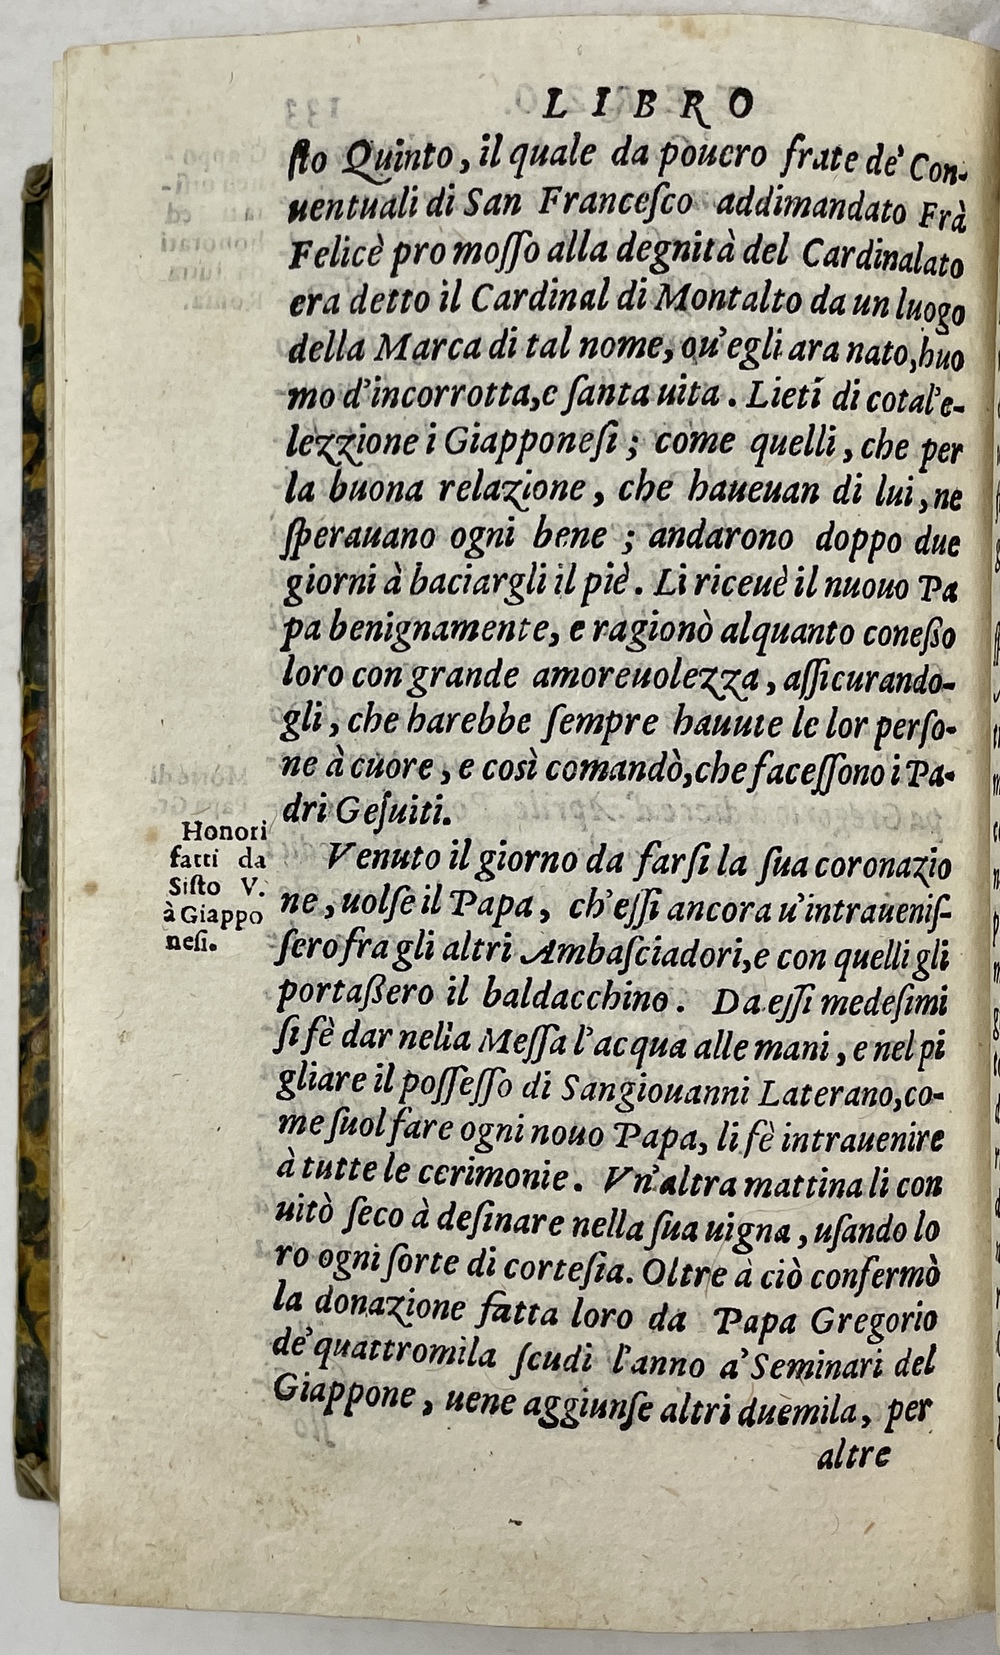 LIBRO
ſto Quinto, il quale da pouero frate de' Con-
uentuali di San Franceſco addimandato Frà
Felicè promoſſo alla degnità del Cardinalato
era detto il Cardinal di Montalto da un luogo
della Marca di tal nome, ou'egli ara nato, huo
mo d'incorrotta, e ſanta uita. Lieti di cotal'e-
lezzione i Giapponeſi; come quelli, che per
la buona relazione, che haueuan di lui, ne
ſperauano ogni bene; andarono doppo due
giorni à baciargli il piè. Li riceuè il nuouo Pa
pa benignamente, e ragionò alquanto coneßo
loro con grande amoreuolezza, aſſicurando-
gli, che harebbe ſempre hauute le lor perſo-
ne à cuore, e così comandò, che faceſſono i Pa-
dri Geſuiti.
Honori
fatti da
Siſto V.
à Giappo
neſi.
Venuto il giorno da farſi la ſua coronazio
ne, uolſe il Papa, ch'eſſi ancora u'intraueniſ-
ſero fra gli altri Ambaſciadori, e con quelli gli
portaßero il baldacchino. Da eſſi medeſimi
ſi fè dar nella Meſſa l'acqua alle mani, e nel pi
gliare il poſſeſſo di Sangiouanni Laterano, co-
me ſuol fare ogni nouo Papa, li fè intrauenire
à tutte le cerimonie. Vn'altra mattina li con
uitò ſeco à deſinare nella ſua uigna, uſando lo
ro ogni ſorte di corteſia. Oltre à ciò confermò
la donazione fatta loro da Papa Gregorio
de' quattromila ſcudi l'anno a' Seminari del
Giappone, uene aggiunſe altri duemila, per
altre